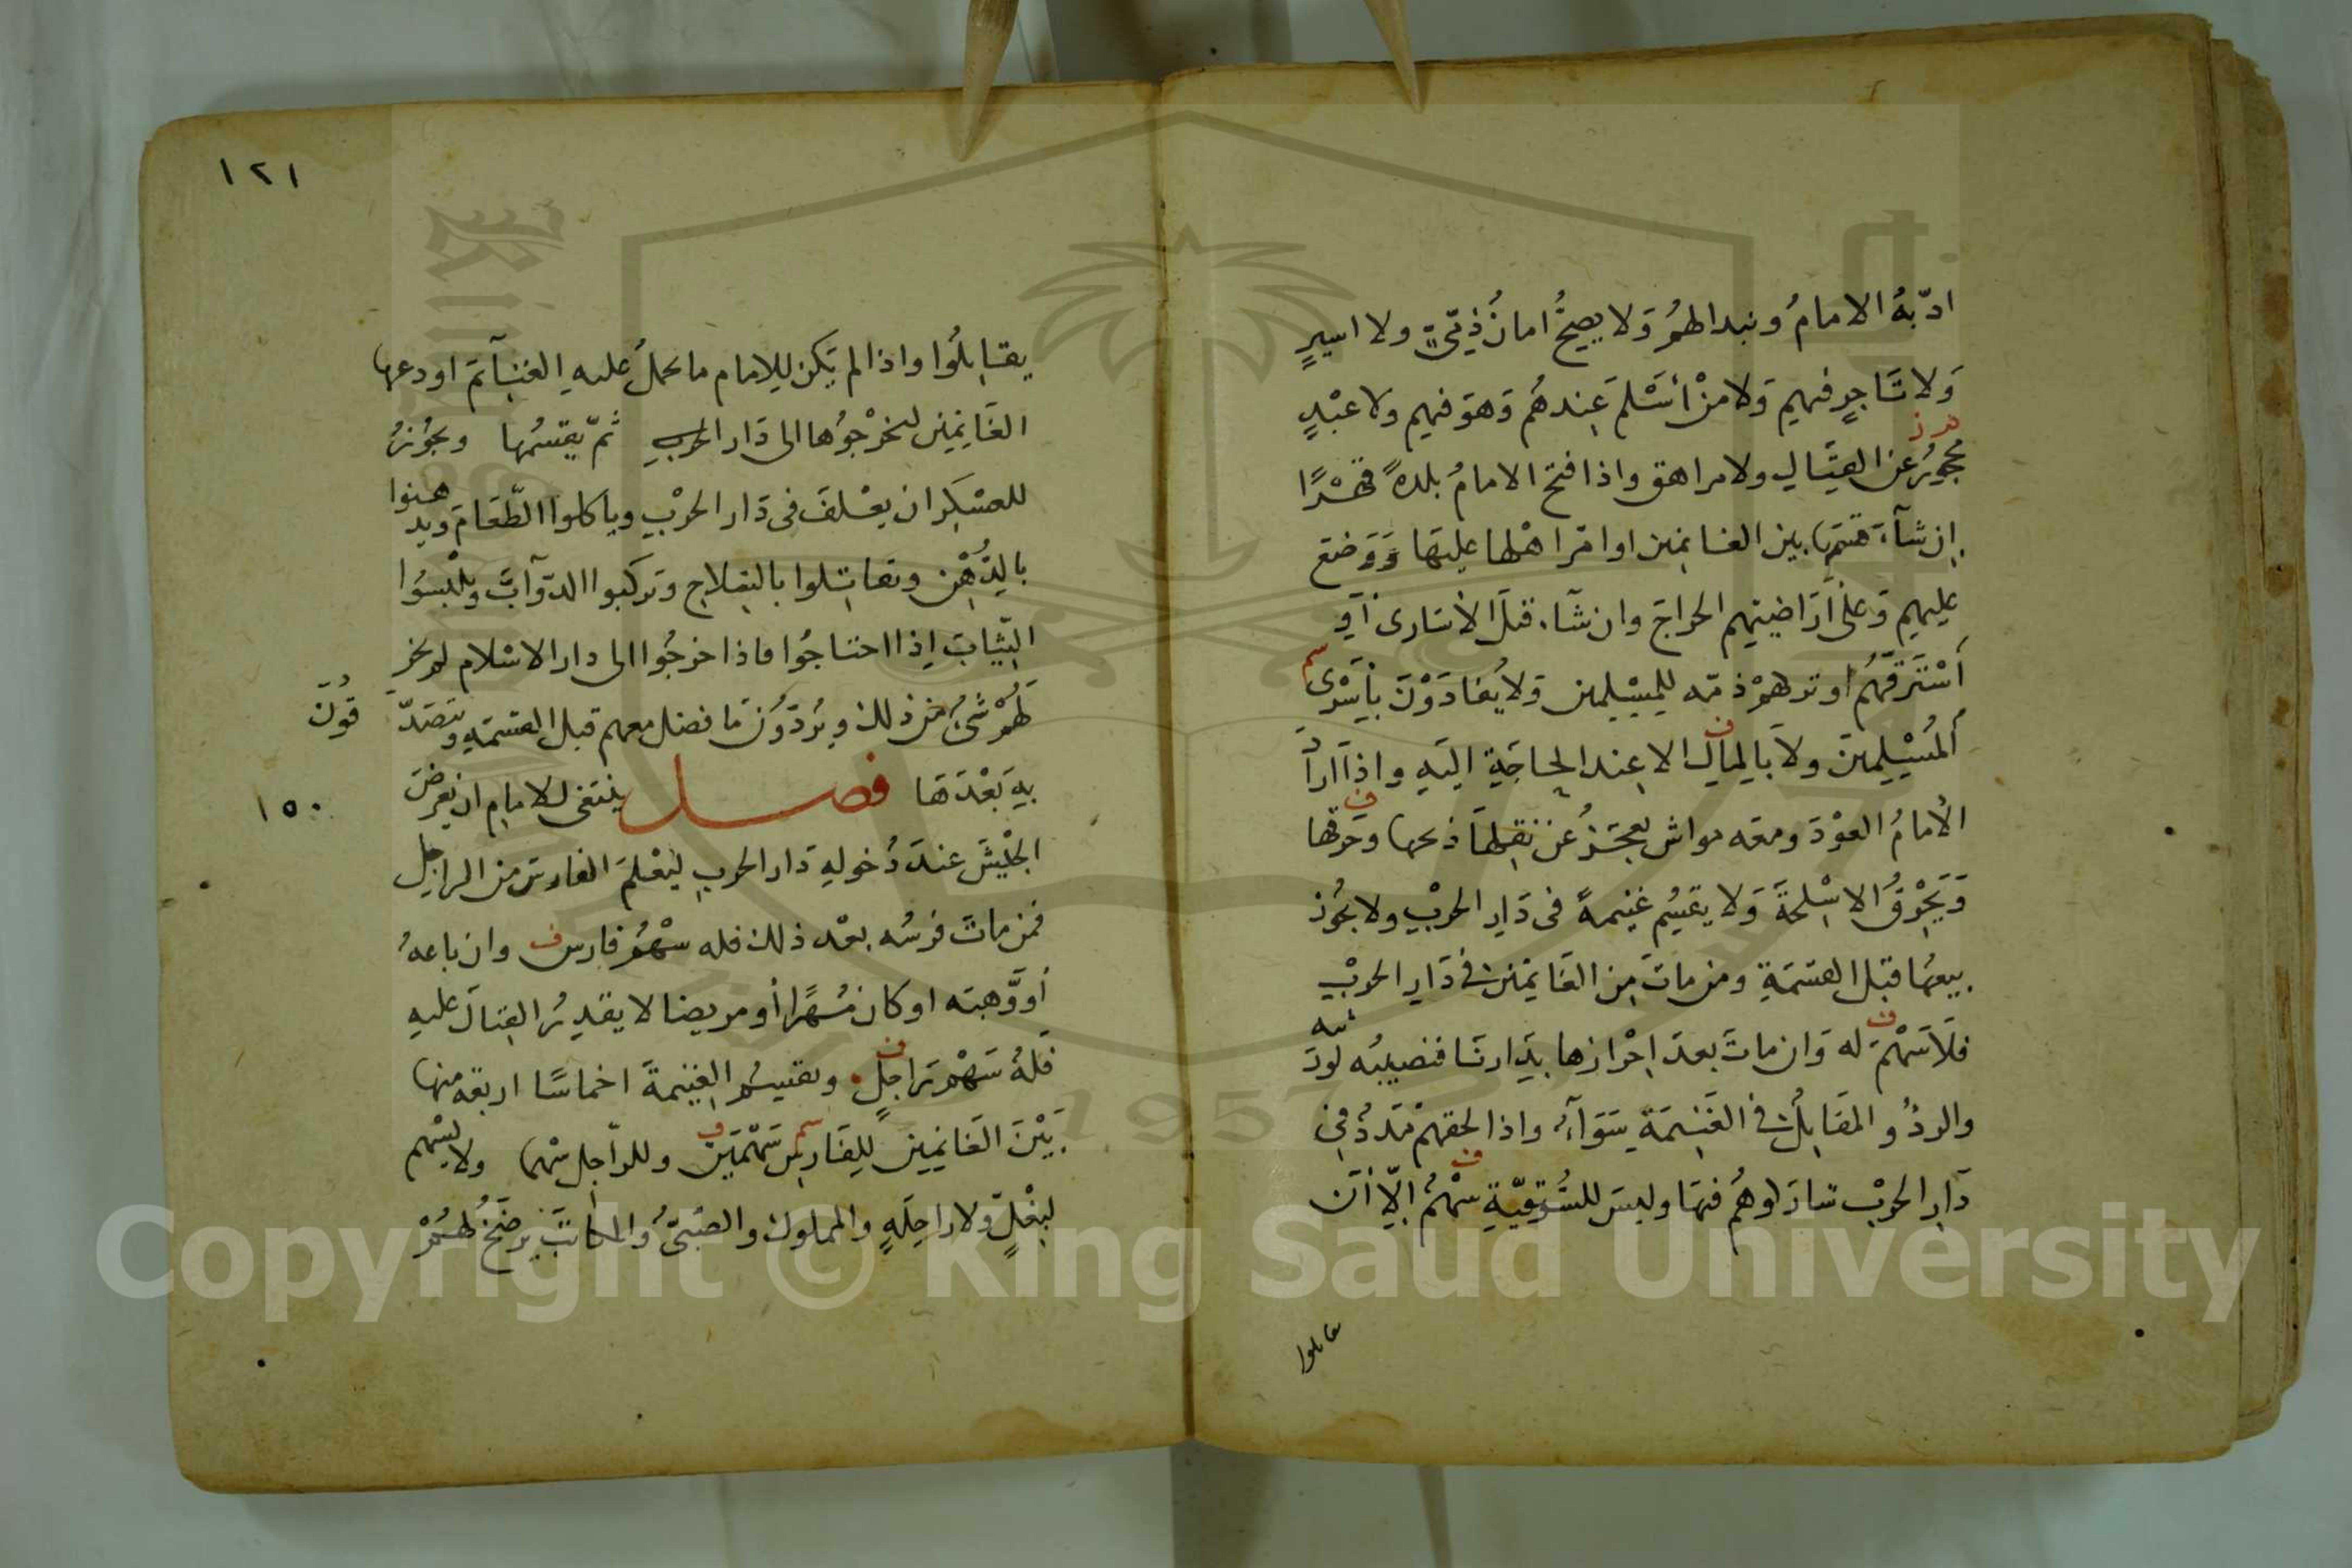 ادّبهُ الامامُ ونبد الهمُ وَلا يصحُّ امانُ ذِمّيّ ولا اسيرٍ
وَلا تَاجرٍ فيهم وَلا منْ أسْلمَ عِندهُم وَهوَ فيهم ولا عبْدٍ
محجورٍ عن القتَالِ ولا مراهق واذا فتح الامامُ بلدةً قهْرًا
إن شآءَ قسَمَها بين الغانمين او اقرا هْلها عليها وَوَضعَ
عليهم وَعلى أرَاضيهم الخراجَ وان شآء قتلَ الأسَارى أو
أسْترقّهُم او تركهمْ ذمّه للمسْلمين وَلا يُفادَوْنَ بأسْرى
المُسْلِمينَ ولاَ بالمالِ الا عِند الحاجَةِ اليَه واذا ارادَ
الأمامُ العوْدَ ومعه مواش يعجَزُ عن نقلها ذبحها وحرقها
وَيَحْرِقُ الاسْلحَةَ وَلا يقسِم غنيمةً فى دَارِ الحرْبِ ولا يجُوز
بيعهُا قبل القسمَةِ ومن ماتَ مِن الغَانمين فى دَارِ الحرْبِ
فلاَ سَهْمَ له وَان ماتَ بعدَ احْرازها بدَارنَا فنصيبُه لورَ
ثته
والردْؤ والمقَاتلُ فى الغَنيمَةِ سَوَآءُ واذا لحقهمْ مَدَدُ فى
دَارِ الحرْبِ شارَكوهُم فيهَا وليسَ للسُّوقيّةِ سهْمُ اِلّا أن
قاتلوا
١٢١
يقاتِلُوا واذا لم يَكن للامام ما يحملُ عليهِ الغنآئمَ اودعها
الغَانمِين ليخرْجوُها الى دَار الحربِ ثمّ يقسمُها ويجُوزُ
للعسْكرِ ان يعْلفَ فى دَار الحرْبِ وياكلوا الطّعَامَ ويد
هنوا
بالدُّهْنِ وتقاتلوا بالسِلاحِ وَتركبوا الدّوآبَّ ويلْبسُوا
الثّيابَ إذا احتاجُوا فاذا خرجُوا الى دار الاسْلام لم يجز
لَهُمْ شىُ من ذلك ويرُدّوُنَ مَا فضل معهم قبل القسمَةِ ويتصَدّ
قُونَ
بهِ بَعْدَهَا فصل ينبَغى للامامِ ان يعرضَ
١٥٠
الجيْشَ عندَ دُخولهِ دَار الحربِ ليَعْلمَ الفارسَ من الراجِلِ
فمن ماتَ فرسُه بعْد ذلك فله سهْمُ فارس وان باعهُ
أو وّهبَه او كان مُهرًا أو مريضا لا يقدِرُ القِتالَ عليه
فلهُ سَهْم رَاجلٍ وتقسمُ الغنيمةَ اخماسًا اربعَه منها
بَيْنَ الغَانمِين للفَارسِ سَهْمَيْن وللرّاجل سهما ولا يُسْهم
لبغْلٍ وَلا راحِلَهٍ والمملوك والصَبىُّ والمكاتبَ يرضَخُ لهُمْ